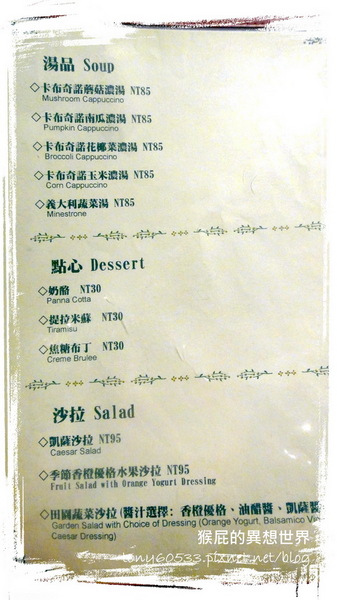 湯品 Soup
◇卡布奇諾蘑菇濃湯 NT85
Mushroom Cappuccino
◇卡布奇諾南瓜濃湯 NT85
Pumpkin Cappuccino
◇卡布奇諾花椰菜濃湯 NT85
Broccoli Cappuccino
◇卡布奇諾玉米濃湯 NT85
Corn Cappuccino
◇義大利蔬菜湯 NT85
Minestrone
點心 Dessert
◇奶酪 NT30
Panna Cotta
◇提拉米蘇 NT30
Tiramisu
◇焦糖布丁 NT30
Creme Brulee
沙拉 Salad
◇凱薩沙拉 NT95
Caesar Salad
◇季節香橙優格水果沙拉 NT95
Fruit Salad with Orange Yogurt Dressing
◇田園蔬菜沙拉(醬汁選擇: 香橙優格、油醋醬、凱薩醬
Garden Salad with Choice of Dressing (Orange Yogurt, Balsamico
Caesar Dressing)
猴屁的異想世界